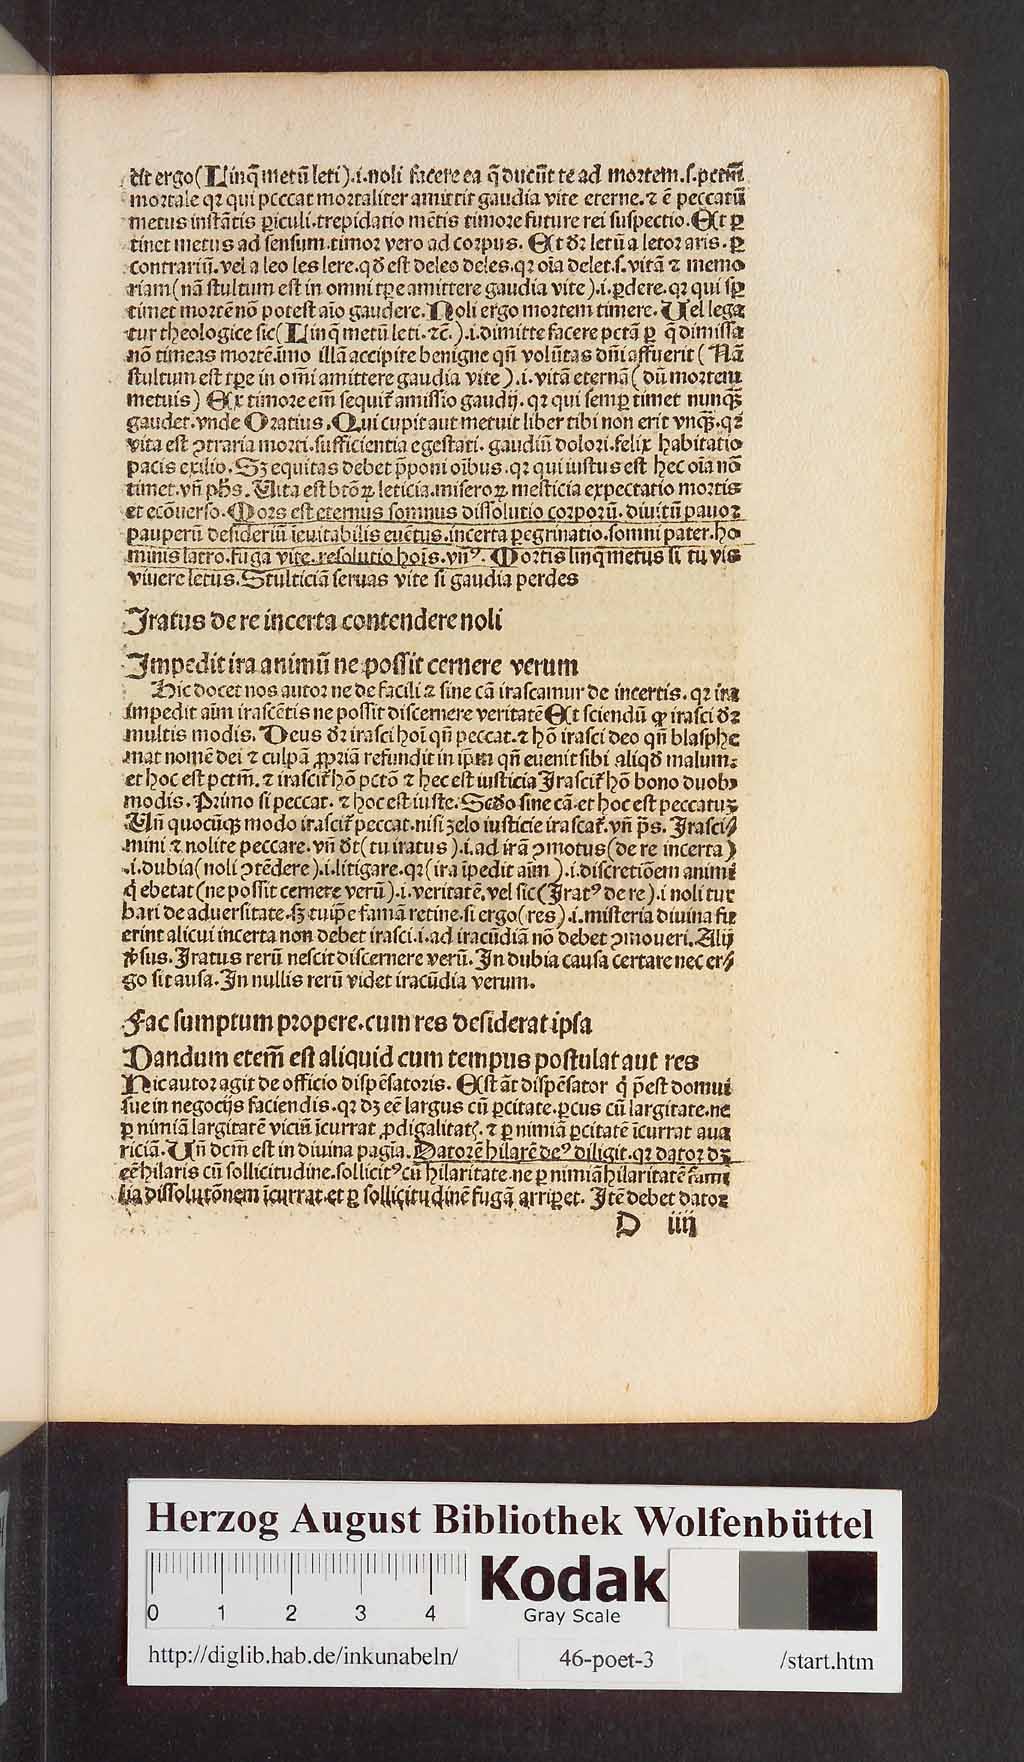 dt̄ ergo (Linq̄ metū leti).i.noli facere ea q̄ ducūt te ad mortem.ſ.pctm̄
mortale qꝛ qui peccat mortaliter amittit gaudia vite eterne.⁊ ē peccatū
metus inſtātis ꝑiculi.trepidatio mētis timore future rei ſuſpectio. Et ꝑ
tinet metus ad ſenſum.timor vero ad corpus. Et dꝛ letū a letor aris. ꝑ
contrariū.vel a leo les lere.qd̄ eſt deleo deles.qꝛ oīa delet.ſ.vitā ⁊ memo
riam (nā ſtultum eſt in omni tp̄e amittere gaudia vite).i.ꝑdere.qꝛ qui ſꝑ
timet mortē nō poteſt aīo gaudere. Noli ergo mortem timere. Uel lega
tur theologice ſic (Linq̄ metū leti.⁊c̄.).i.dimitte facere pctā ꝑ q̄ dimiſſa
nō timeas mortē.imo illā accipite benigne qn̄ volūtas dn̄i affuerit (Nā
ſtultum eſt tp̄e in om̄i amittere gaudia vite).i.vitā eternā (dū mortem
metuis) Ex timore em̄ ſequit̄ amiſſio gaudij. qꝛ qui ſemꝑ timet nunqȝ̄
gaudet.vnde Oratius. Qui cupit aut metuit liber tibi non erit vnqȝ̄.qꝛ
vita eſt ꝯtraria morti.ſufficientia egeſtati. gaudiū dolori.felix habitatio
pacis exilio. Sȝ equitas debet p̄poni oībus.qꝛ qui iuſtus eſt hec oīa nō
timet.vn̄ ph̄s. Uita eſt btōꝝ leticia.miſeroꝝ meſticia expectatio mortis
et ecōuerſo. Mors eſt eternus ſomnus diſſolutio corporū. diuitū pauor
pauperū deſideriū īeuitabilis euētus.incerta ꝑegrinatio.ſomni pater.ho
minis latro.fuga vite.reſolutio hoīs.vn̄⁹. Mortis linq̄ metus ſi tu vis
viuere letus. Stulticiā ſeruas vite ſi gaudia perdes
Iratus de re incerta contendere noli
Impedit ira animū ne poſſit cernere verum
Hic docet nos autor ne de facili ⁊ ſine cā iraſcamur de incertis. qꝛ ira
impedit aīm iraſcētis ne poſſit diſcernere veritatē Et ſciendū ꝙ iraſci dꝛ
multis modis. Deus dꝛ iraſci hoī qn̄ peccat.⁊ hō iraſci deo qn̄ blaſphe
mat nomē dei ⁊ culpā ꝓpriā refundit in ip̄m qn̄ euenit ſibi aliqd̄ malum.
et hoc eſt pctm̄. ⁊ iraſcit̄ hō pctō ⁊ hec eſt iuſticia Iraſcit̄ hō bono duobꝰ
modis. Primo ſi peccat. ⁊ hoc eſt iuſte. Scd̄o ſine cā.et hoc eſt peccatuȝ
Un̄ quocūqȝ modo iraſcit̄ peccat.niſi zelo iuſticie iraſcat̄.vn̄ p̄s. Iraſci/
mini ⁊ nolite peccare.vn̄ dt̄ (tu iratus).i.ad irā ꝯmotus (de re incerta)
.i.dubia (noli ꝯtēdere).i.litigare.qꝛ (ira īpedit aīm).i.diſcretiōem animi
q̄ ebetat (ne poſſit cernere verū).i.veritatē.vel ſic (Irat⁹ de re).i noli tur
bari de aduerſitate.ſȝ tuip̄e famā retine.ſi ergo (res).i.miſteria diuina fu
erint alicui incerta non debet iraſci.i.ad iracūdiā nō debet ꝯmoueri. Alij
v̄ſus. Iratus rerū neſcit diſcernere verū. In dubia cauſa certare nec er/
go ſit auſa. In nullis rerū videt iracūdia verum.
Fac ſumptum propere.cum res deſiderat ipſa
Dandum etem̄ eſt aliquid cum tempus poſtulat aut res
Hic autor agit de officio diſpēſatoris. Eſt āt diſpēſator q̄ p̄eſt domui
ſue in negocijs faciendis.qꝛ dȝ eē largus cū ꝑcitate.ꝑcus cū largitate.ne
ꝑ nimiā largitatē viciū īcurrat ꝓdigalitatꝭ. ⁊ ꝑ nimiā ꝑcitatē īcurrat aua
riciā. Un̄ dcm̄ eſt in diuina pagīa. Datorē hilarē de⁹ diligit.qꝛ dator dȝ
eē hilaris cū ſollicitudine.ſollicit⁹ cū hilaritate.ne ꝑ nimiā hilaritatē fami
lia diſſolutōnem īcurrat.et ꝑ ſollicitudinē fugā arriꝑet. Itē debet dator
D iiij
Herzog August Bibliothek Wolfenbüttel
0 1 2 3 4
Kodak
Gray Scale
http://diglib.hab.de/inkunabeln/ 46-poet-3 /start.htm